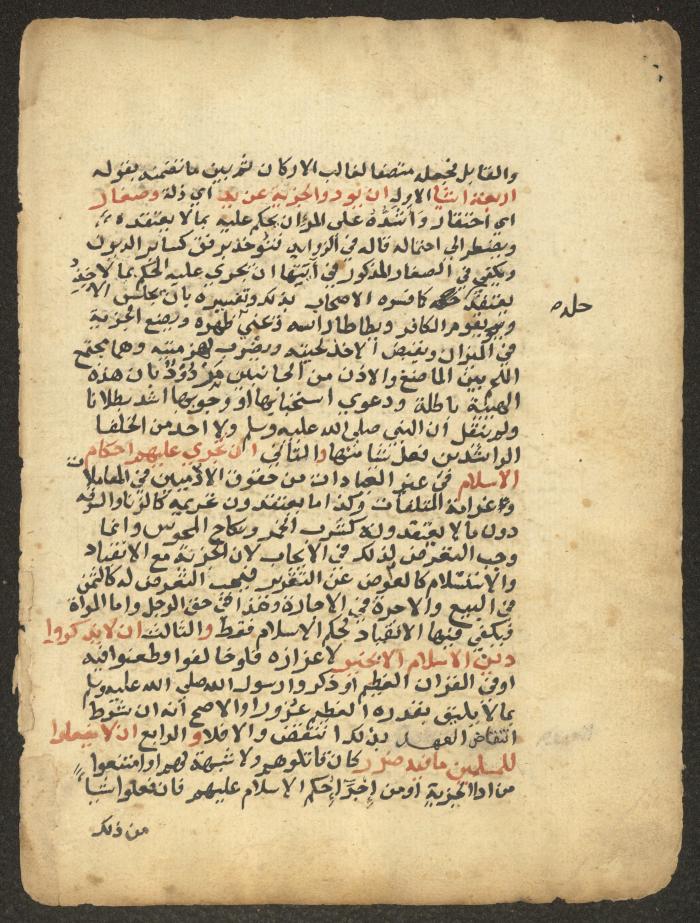 والقابل فجعله متصفا لغالب الاركان ثم بين ما تضمنه بقوله
اربعة اشيا الاول ان يودوا الجزية عن يد اي ذلة وصغار
اي احتقار واشده على المرء ان يحكم عليه بما لا يعتقده
ويضطر الى احتماله قاله في الزوايد فتوخذ برفق كساير الديون
ويكفي في الصغار المذكور في آيتها ان يجري عليه الحكم بما لا
يعتقد حله كما فسره الاصحاب بذلك وتفسيره بان يجلس الاخذ
ويقوم الكافر ويطاطا راسه ويحني ظهره ويضع الجزية
في الميزان ويقبض الاخذ لحيته ويضرب لهزمتيه وهما مجتمع
اللحم بين الماضغ والاذن من الجانبين مردود بان هذه
الهيئة باطلة ودعوي استحبابها او وجوبها اشد بطلانا
ولم ينقل ان النبي صلى الله عليه وسلم ولا احد من الخلفا
الراشدين فعل شيا منها والثاني ان تجري عليهم احكام
الاسلام في غير العبادات من حقوق الادميين في المعاملات
وغرامة المتلفات وكذا ما يعتقدون تحريمه كالزنا والسرقه
دون ما لا يعتقدونه كشرب الخمر ونكاح المجوس وانما
وجب التعرض لذلك في الايجاب لان الجزية مع الانقياد
والاستسلام كالعوض عن التقرير فيجب التعرض له كالثمن
في البيع والاجرة في الاجارة وهذا في حق الرجل واما المراة
فيكفي فيها الانقياد لحكم الاسلام فقط والثالث ان لا يذكروا
دين الاسلام الا بخير لاعزازه فلو خالفوا وطعنوا فيه
او في القران العظيم او ذكروا رسول الله صلى الله عليه وسلم
بما لا يليق بقدره العظيم عزروا والاصح انه ان شرط
انتقاض العهد بذلك انتقض والا فلا والرابع ان لا يفعلوا
للمسلمين ما فيه ضرر كان قاتلوهم ولا شبهة لهم او امتنعوا
من ادا الجزية او من اجرا حكم الاسلام عليهم فان فعلوا شيا
من ذلك
حله